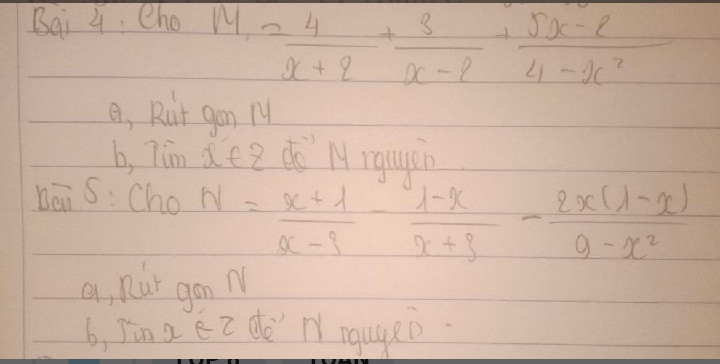 Bài 4: Cho M = 4/(x+2) + 3/(x-2) + (5x-2)/(4-x²)
a, Rút gọn M
b, Tìm x ∈ Z để M nguyên
Bài 5: Cho N = (x+1)/(x-3) - (1-x)/(x+3) - 2x(1-x)/(9-x²)
a, Rút gọn N
b, Tìm x ∈ Z để N nguyên.